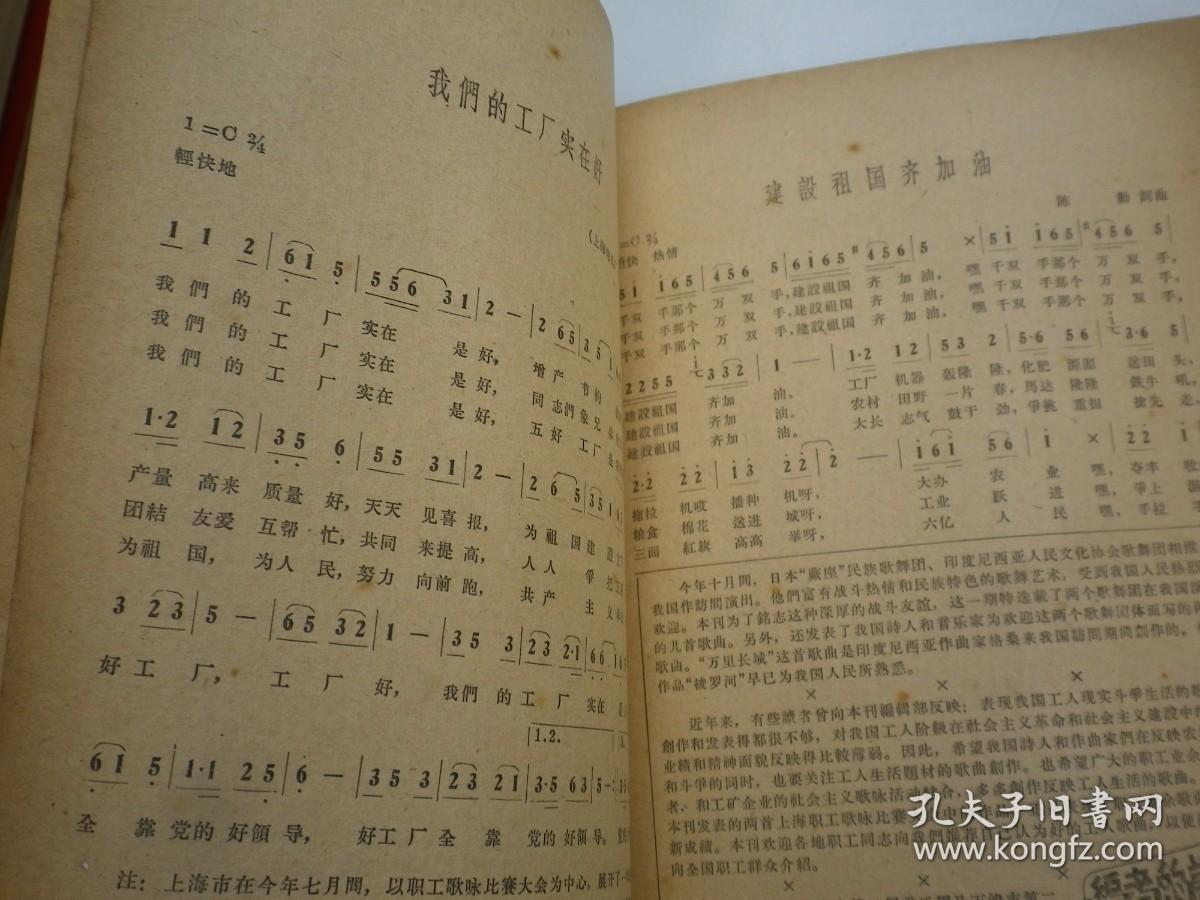 我們的工厂实在好
1=C 2/4
輕快地
(上海
1 1 2 | 6 1 5 | 5 5 6 3 1 | 2 — | 2 6 5 | 3 5
我們 的 工 厂 实在 是 好, 增 产 节 約
我們 的 工 厂 实在 是 好, 同 志們 象 兄
我們 的 工 厂 实在 是 好, 五 好 工 厂
1·2 1 2 | 3 5 6 | 5 5 3 1 | 2 — | 2 6 5 | 3 5 1
产量 高来 质量 好, 天天 见喜 报, 为 祖 国 建 設
团結 友爱 互帮 忙, 共同 来提 高, 人 人 爭
为祖 国, 为人 民, 努力 向前 跑, 共 产 主 义
3 2 3 | 5 — | 6 5 3 2 | 1 — | 3 5 3 | 2 3 2·1 | 6 6
好 工 厂, 工 厂 好, 我們 的 工 厂 实在
1.2.
6 1 5 | 1·1 2 5 | 6 — | 3 5 3 | 2 3 2 1 | 3·5 6 3 | 5 —
全 靠 党的 好領 导, 好工 厂 全 靠 党的 好領 导。
注: 上海市在今年七月間, 以职工歌咏比賽大会为中心, 展开了一
建設祖国齐加油
陈 勳 詞曲
=C 2/4
快 热情
5 1 1 6 5 | 4 5 6 5 | 6 1 6 5 #4 5 6 | 5 × | 5 1 1 6 5 | #4 5 6 5
千双 手那个 万 双 手, 建設祖国 齐 加 油, 嘿 千双 手那个 万 双 手,
千双 手那个 万 双 手, 建設祖国 齐 加 油, 嘿 千双 手那个 万 双 手,
千双 手那个 万 双 手, 建設祖国 齐 加 油, 嘿 千双 手那个 万 双 手,
2 2 5 5 3 3 2 | 1 — | 1·2 1 2 | 5 3 2 | 5·6 5 6 | 3·6 5
建設祖国 齐加 油。 工厂 机器 轰隆 隆, 化肥 源源 送田 头,
建設祖国 齐加 油。 农村 田野 一片 春, 馬达 隆隆 鉄牛 吼,
建設祖国 齐加 油。 大长 志气 鼓干 劲, 爭挑 重担 搶先 走,
2·2 2 2 | 1 3 2 2 | 2 — | 1 6 1 5 6 | 1 × | 2 2 1
拖拉 机哎 播种 机呀, 大办 农 业 嘿, 夺丰 收
粮食 棉花 送进 城呀, 工业 跃 进 嘿, 爭上
三面 紅旗 高高 举呀, 六亿 人 民 嘿, 手拉
今年十月間, 日本“蕨座”民族歌舞团、印度尼西亚人民文化协会歌舞团相继
我国作訪問演出。他們富有战斗热情和民族特色的歌舞艺术, 受到我国人民热烈
欢迎。本刊为了銘志这种深厚的战斗友誼, 这一期特选载了两个歌舞团在我国演
的几首歌曲。另外, 还发表了我国詩人和音乐家为欢迎这两个歌舞团体而写的
歌曲。“万里长城”这首歌曲是印度尼西亚作曲家格桑来我国訪問期間創作的。
作品“梭罗河”早已为我国人民所熟悉。
× × ×
近年来, 有些讀者曾向本刊編輯部反映: 表现我国工人现实斗爭生活的歌
創作和发表得都很不够, 对我国工人阶級在社会主义革命和社会主义建設中
业績和精神面貌反映得比較薄弱。因此, 希望我国詩人和作曲家們在反映农
和斗爭的同时, 也要关注工人生活題材的歌曲創作。也希望广大的职工业余
者、和工矿企业的社会主义歌咏活动結合, 多多創作反映工人生活的歌曲。
本刊发表的两首上海职工歌咏比賽
新成績。本刊欢迎各地职工同志向我們推荐自己认为好的工人歌曲, 以便
向全国职工群众介紹。
× × ×
孔夫子旧书网
www.kongfz.com